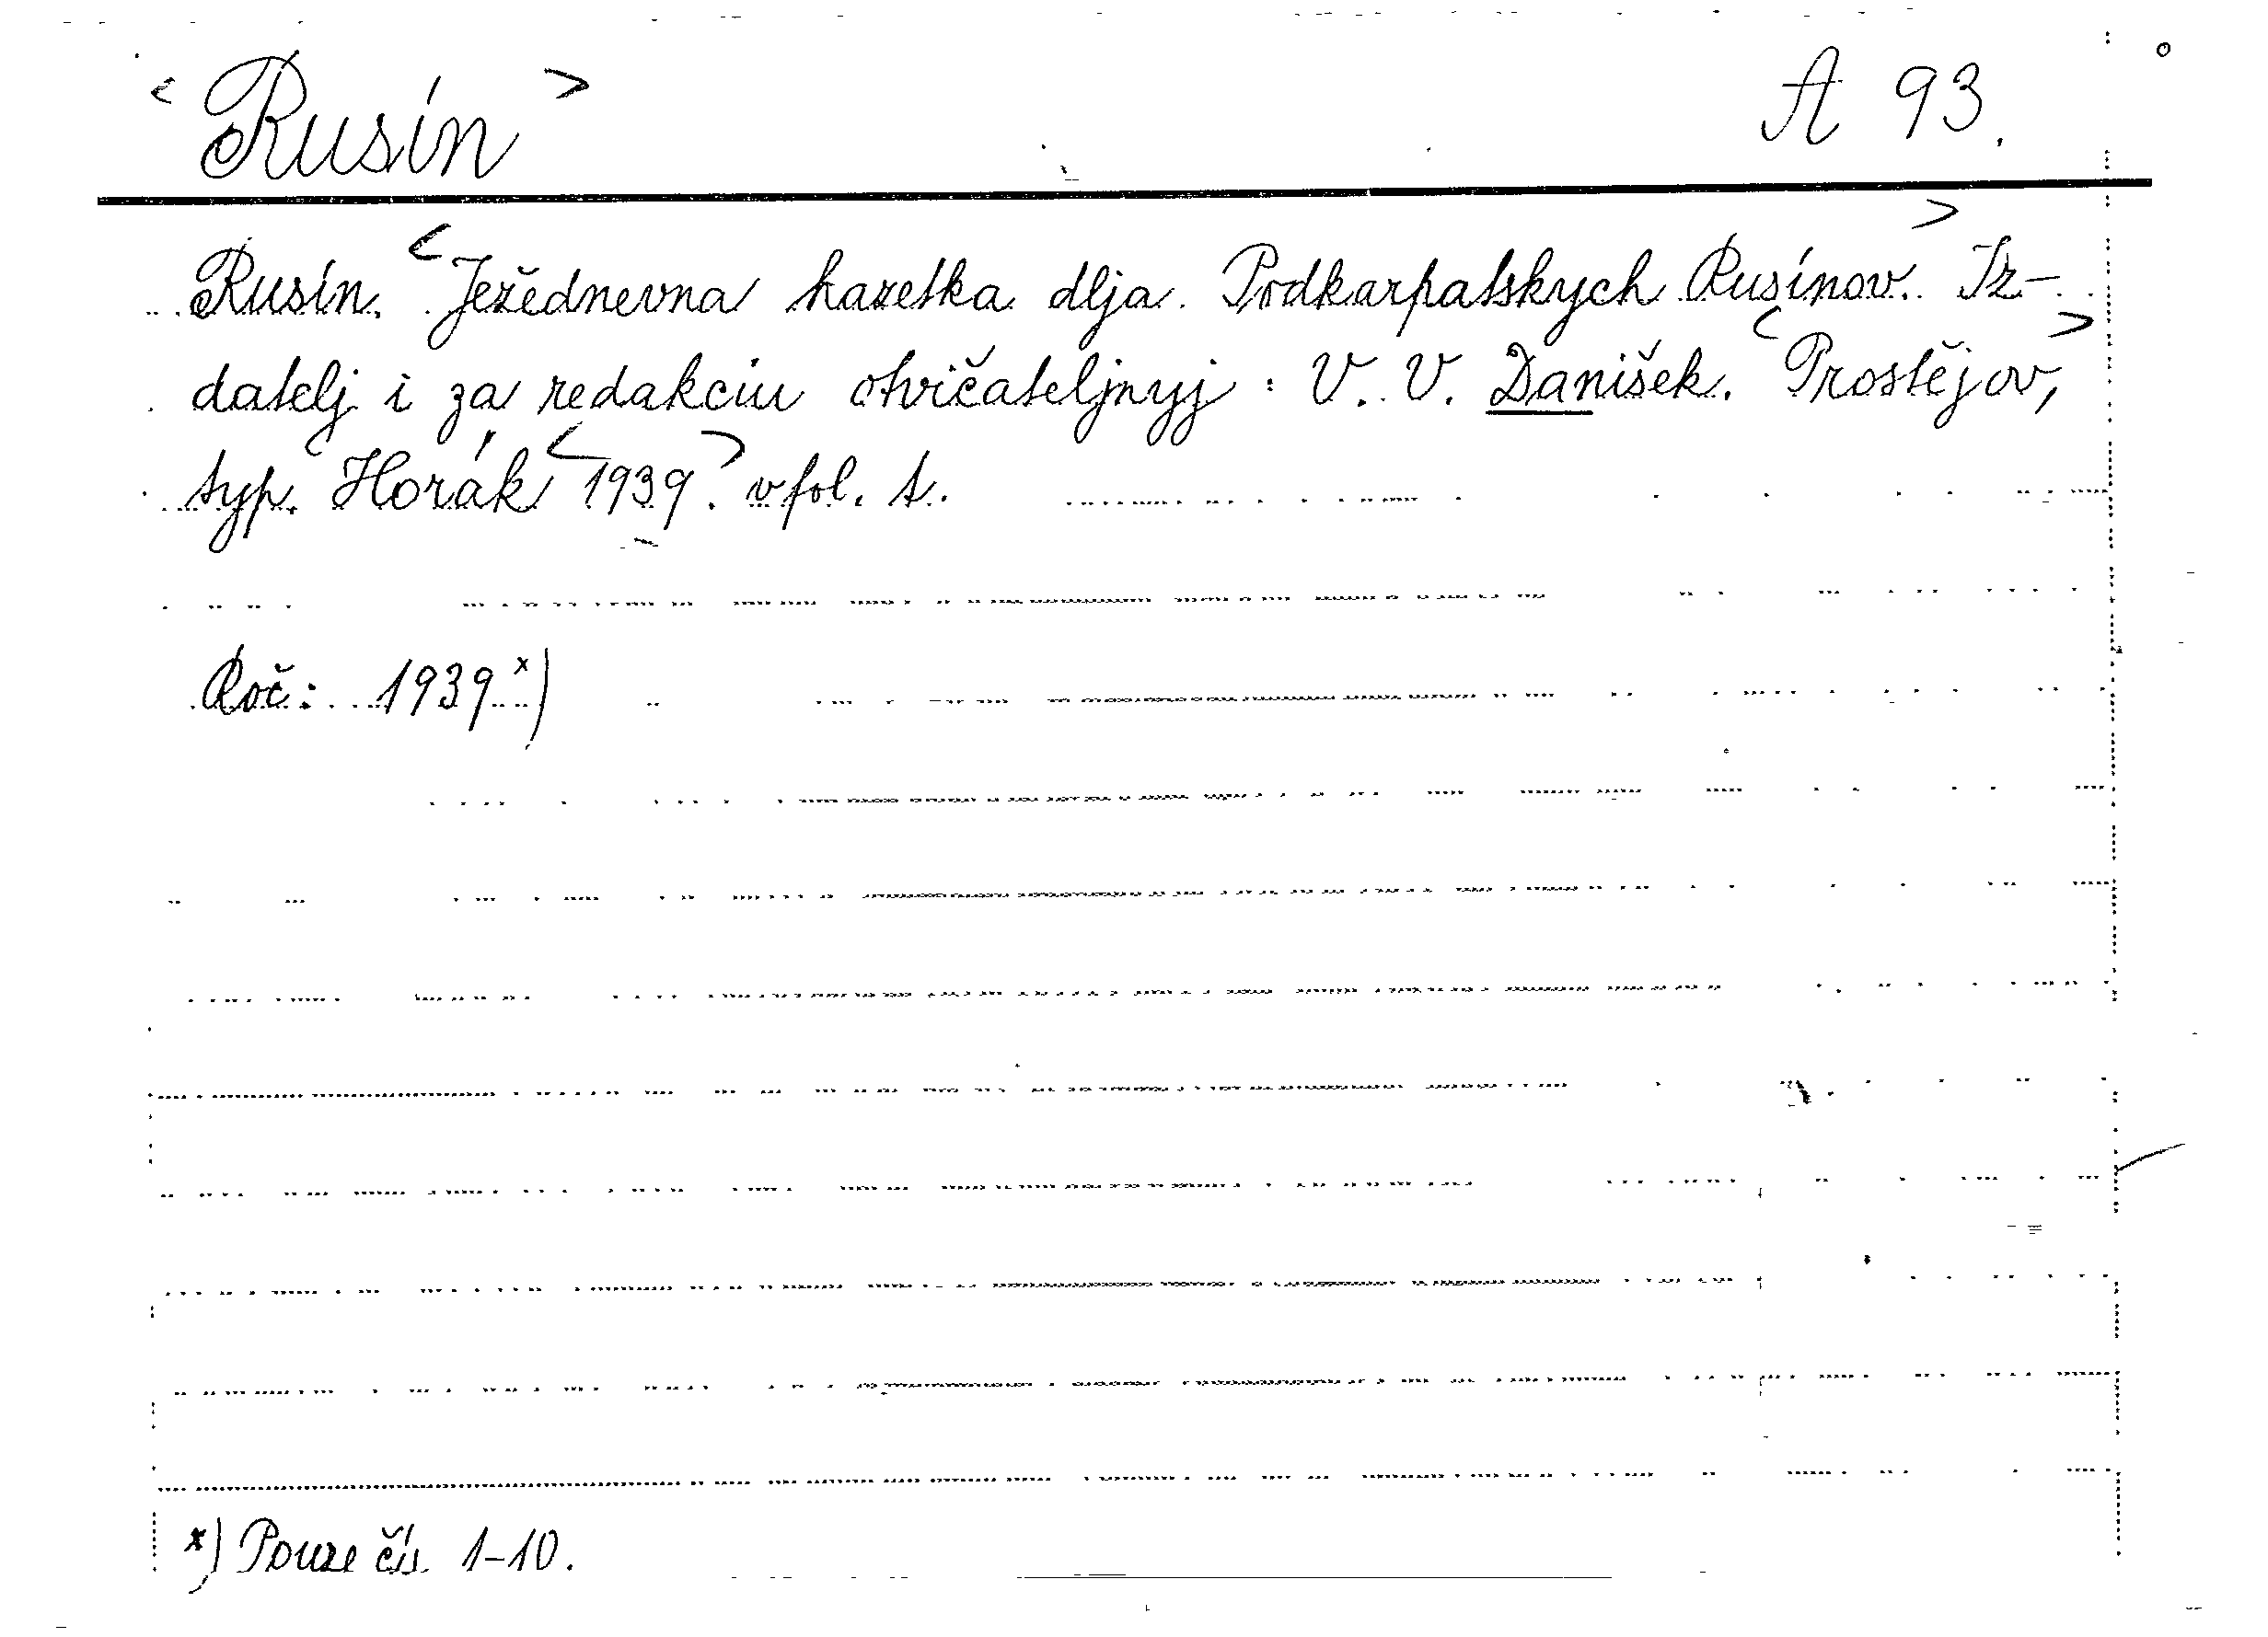 < Rusín > A 93.
Rusín. < Ježednevna hazetka dlja Podkarpatskych Rusínov. > Iz-
datelj i za redakciu otvičateljnyj: V. V. Danišek. < Prostějov, >
typ. Horák < 1939. > v fol. t.
Roč: 1939 x)
x) Pouze čís. 1-10.